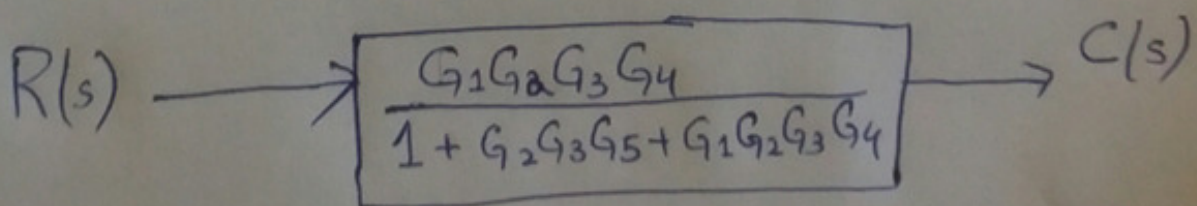 R(s)
G1G2G3G4
1 + G2G3G5 + G1G2G3G4
C(s)